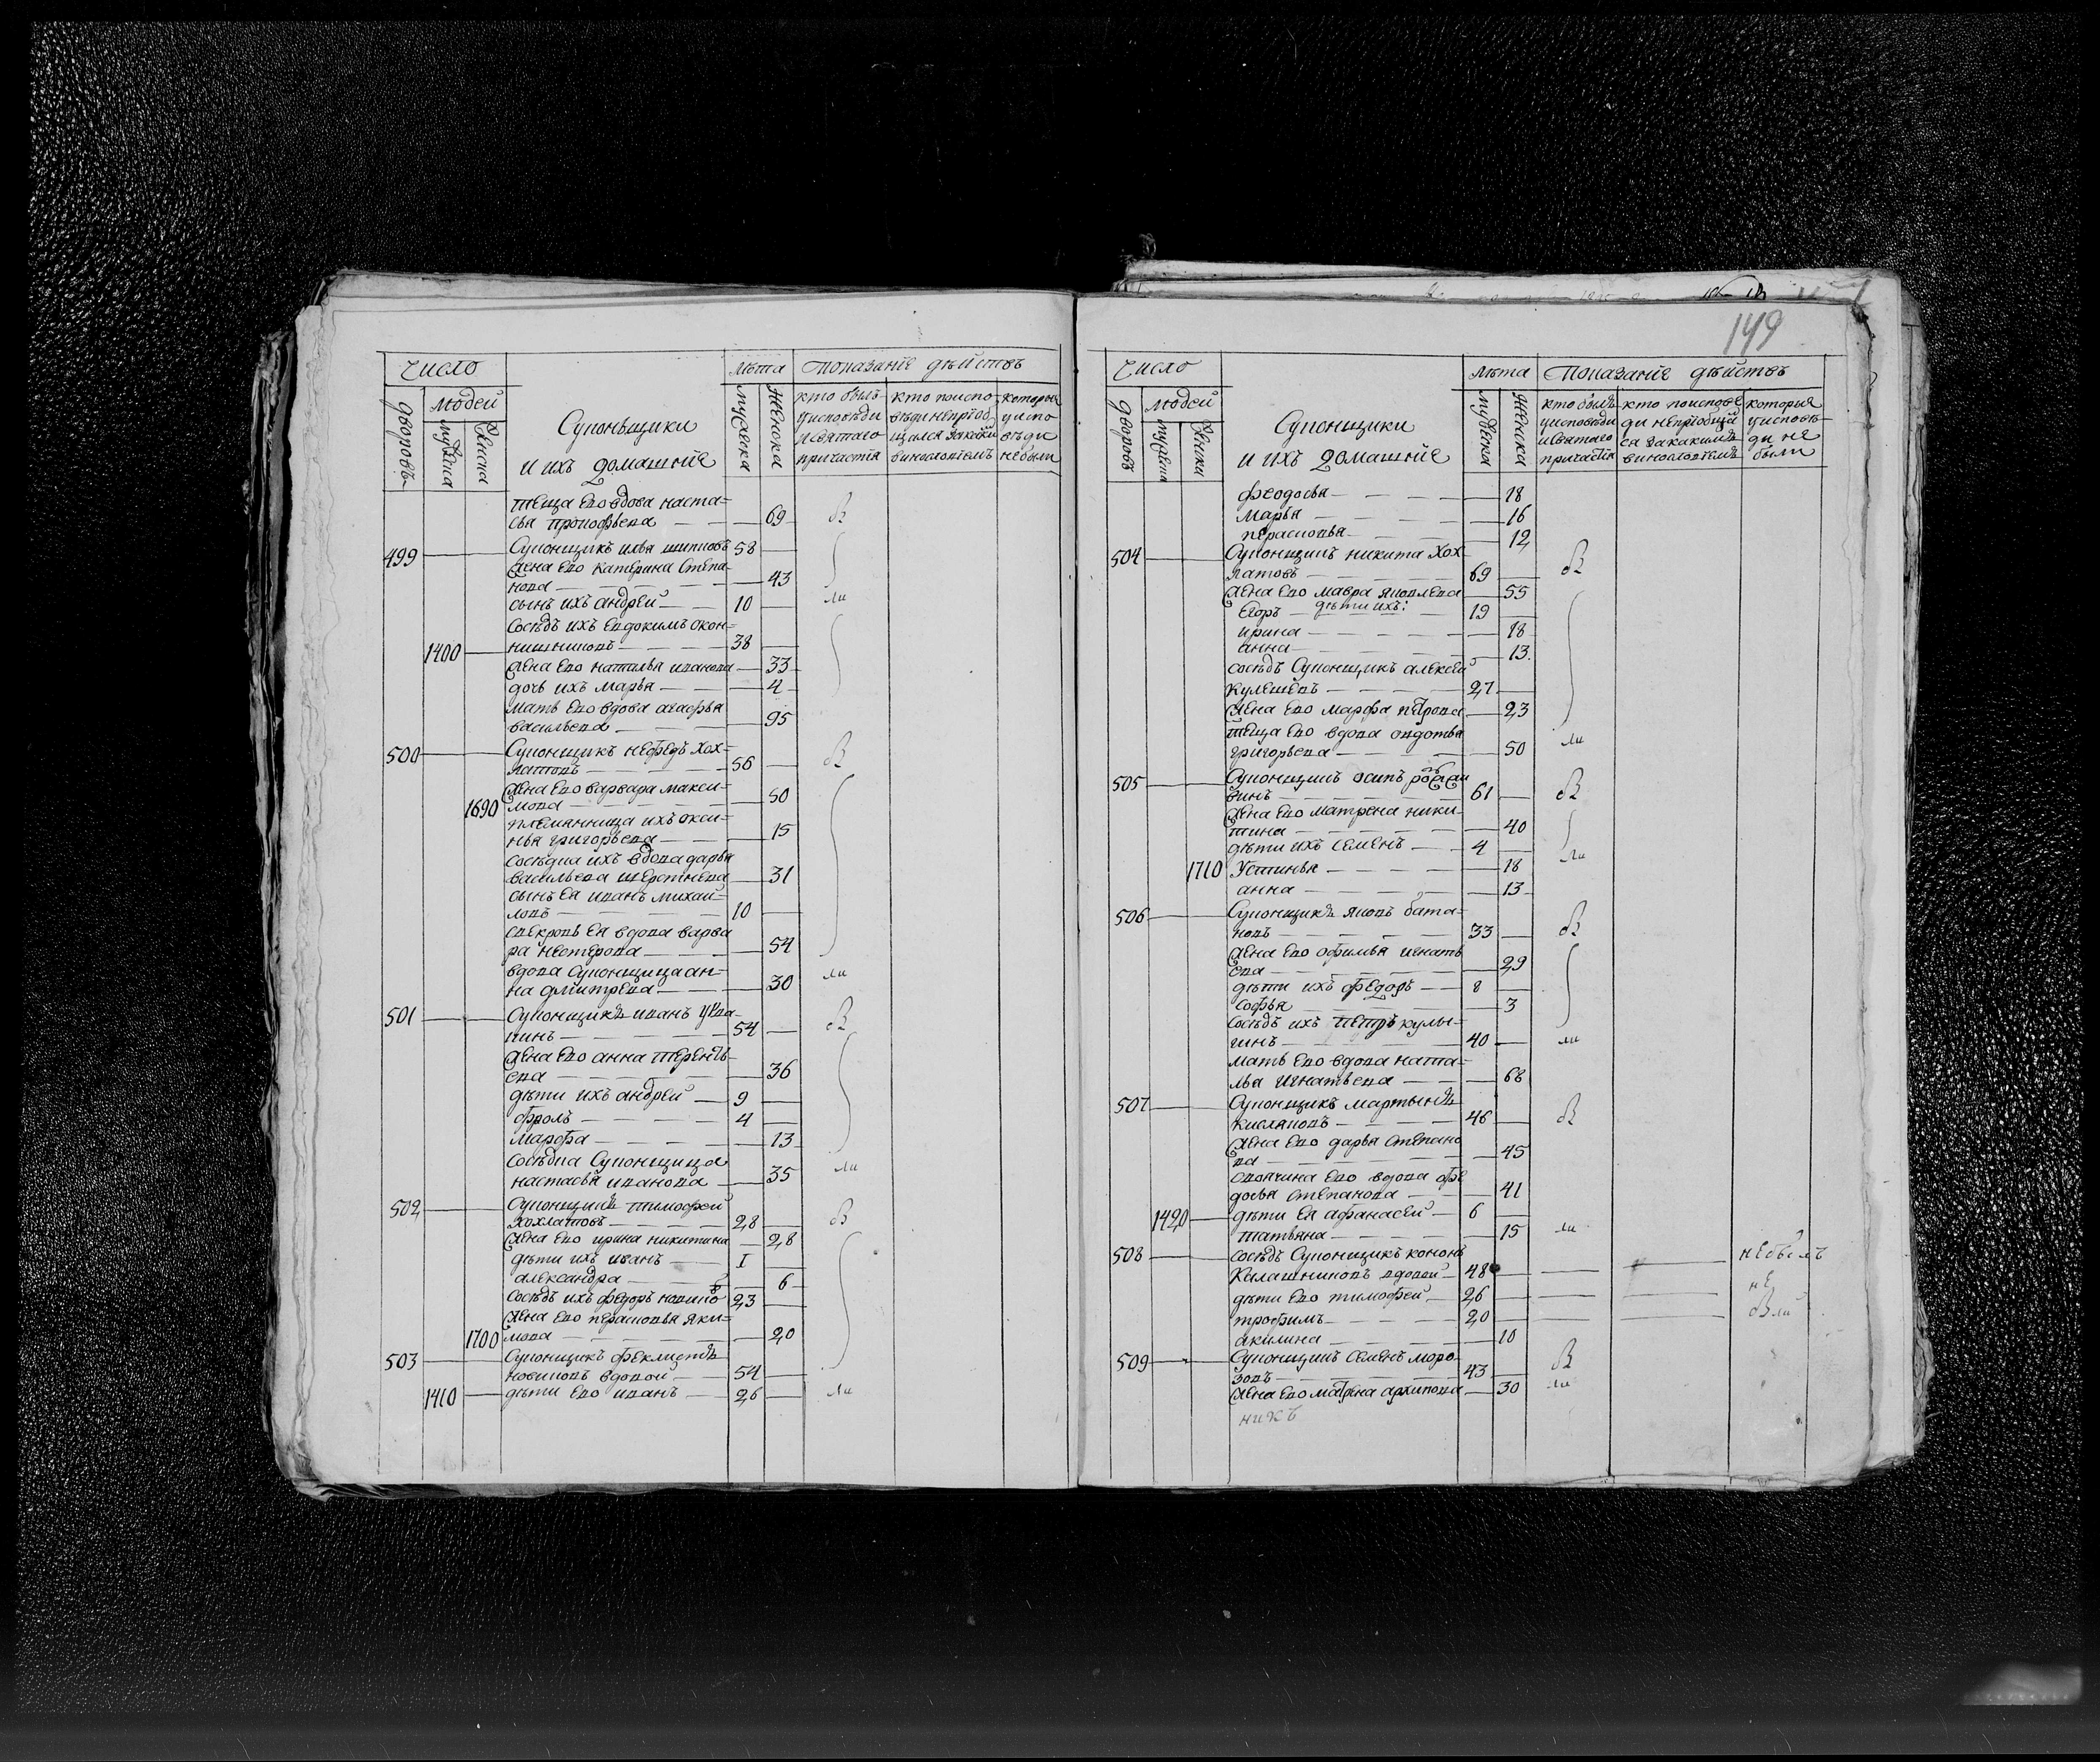 149
Число
Лѣта
Показанїе дѣйствъ
дворовъ
Людей
мужеска
женска
Суконьщики
и ихъ домашнїе
мужеска
женска
кто былъ
у исповѣди
и святаго
причастїя
кто по испо-
вѣди не прїоб-
щался
виносло­вїемъ
которыя
у испо-
вѣди
не были
теща ево вдова наста-
сья прокофьева 69
499 Суконщикъ илья 58
жена ево катерина степа-
нова 43
сынъ ихъ андрей 10
сосѣдъ ихъ евдокимъ окон-
нишниковъ 38
1400
жена ево наталья иванова 33
дочь ихъ марья 4
мать ево вдова агафья
васильева 95
500 Суконщикъ нефедъ хох-
латовъ 56
жена ево варвара макси-
1690 мова 50
племянница ихъ окси-
нья григорьева 15
сосѣдка ихъ вдова дарья
васильева шерстнева 31
сынъ ея иванъ михай-
ловъ 10
свекровь ея вдова варва
ра нестерова 54
вдова суконщица ан-
на дмитрева 30
501 Суконщикъ иванъ
54
жена ево анна терентъ-
ева 36
дѣти ихъ андрей 9
фролъ 4
марфа 13
сосѣдка Суконщица
настасья иванова 35
502 Суконщикъ тимофей
хохлатовъ 28
жена ево ирина никитина 28
дѣти ихъ иванъ 1
александра 6
сосѣдъ ихъ федоръ новико 23
жена ево перасковья яки-
1700 мова 20
503 Суконщикъ феклистъ
новиковъ вдовой 54
1410 дѣти ево иванъ 26
Число
Лѣта
Показанїе дѣйствъ
дворовъ
Людей
мужеска
женски
Суконщики
и ихъ домашнїе
мужеска
женска
кто былъ
у исповѣди
и святаго
причастїя
кто по исповѣ
ди не прїобщал
ся за какимъ
виносло­вїемъ
которыя
у исповѣ-
ди не
были
феодосья 18
марья 16
перасковья 12
504 Суконщикъ никита хох
латовъ 69
жена ево мавра яковлева 55
дѣти ихъ:
егоръ 19
ирина 18
анна 13
сосѣдъ Суконщикъ алексей
кулешевъ 27
жена ево марфа петрова 23
теща ево вдова овдотья
григорьева 50
505 Суконщикъ осипъ
винъ 61
жена ево матрена ники-
тина 40
дѣти ихъ семенъ 4
1710 устинья 18
анна 13
506 Суконщикъ яковъ бата-
ковъ 33
жена ево офимья игнатъ
ева 29
дѣти ихъ федоръ 8
софья 3
сосѣдъ ихъ петръ кулы-
гинъ 40
мать ево вдова ната-
лья игнатьева 68
507 Суконщикъ мартынъ
кисляковъ 46
жена ево дарья степано
ва 45
своячина ево вдова фе
досья степанова 41
1420 дѣти ея афанасей 6
татьяна 15
508 сосѣдъ Суконщикъ кононъ
калашниковъ вдовой 48
дѣти ево тимофей 26
трофимъ 20
акилина 10
509 Суконщикъ семенъ моро-
зовъ 43
жена ево матрена архипова 30
никъ